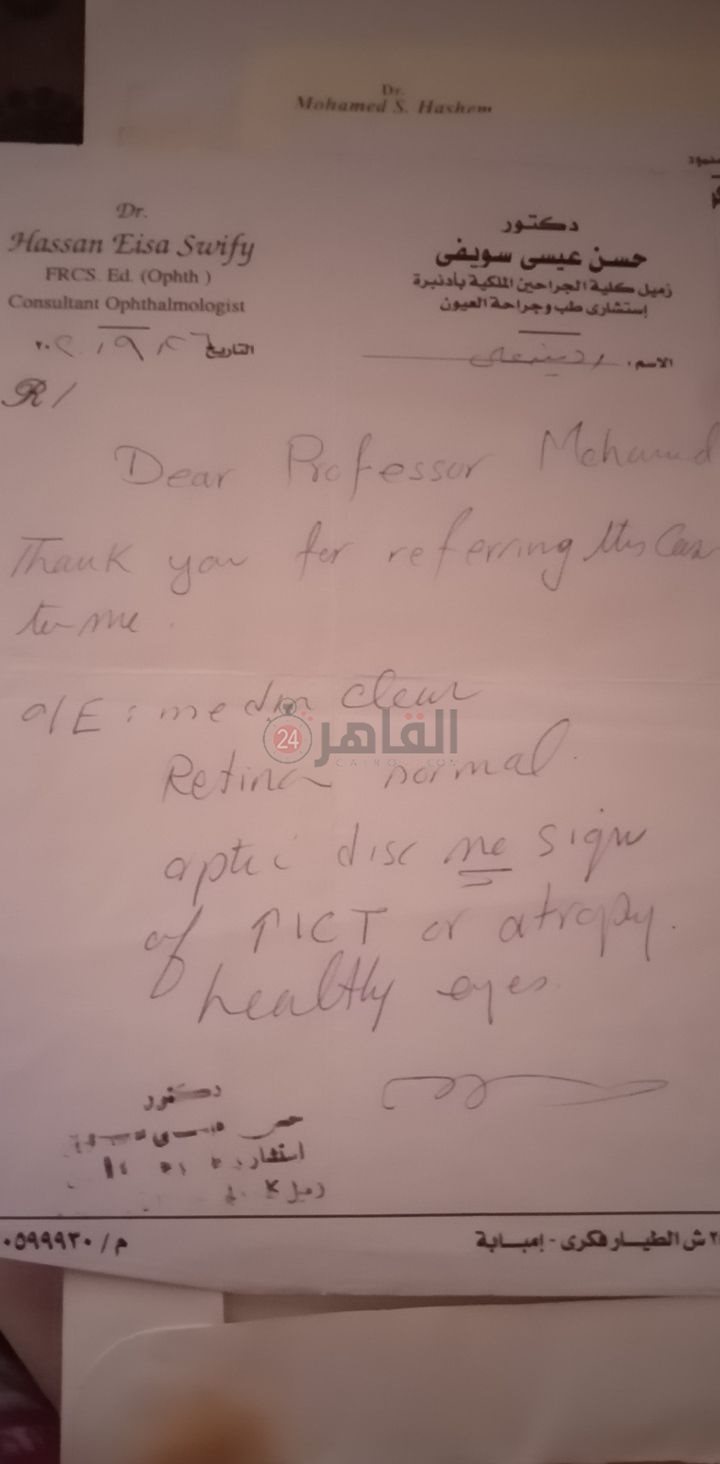 Dr.
Mohamed S. Hashem
Dr.
Hassan Eisa Swify
FRCS. Ed. (Ophth)
Consultant Ophthalmologist
دكتور
حسن عيسى سويفى
زميل كلية الجراحين الملكية بأدنبرة
إستشارى طب وجراحة العيون
التاريخ
الاسم:
R/
Dear Professor Mohamed
Thank you for referring this Case
to me.
O/E: media clear
القاهرة 24
CAIRO .COM
Retina normal.
optic disc no sign
of ↑ICT or atropy.
healthy eyes
دكتور
ش الطيار فكرى - إمبابة
م/٠٥٩٩٩٣٠